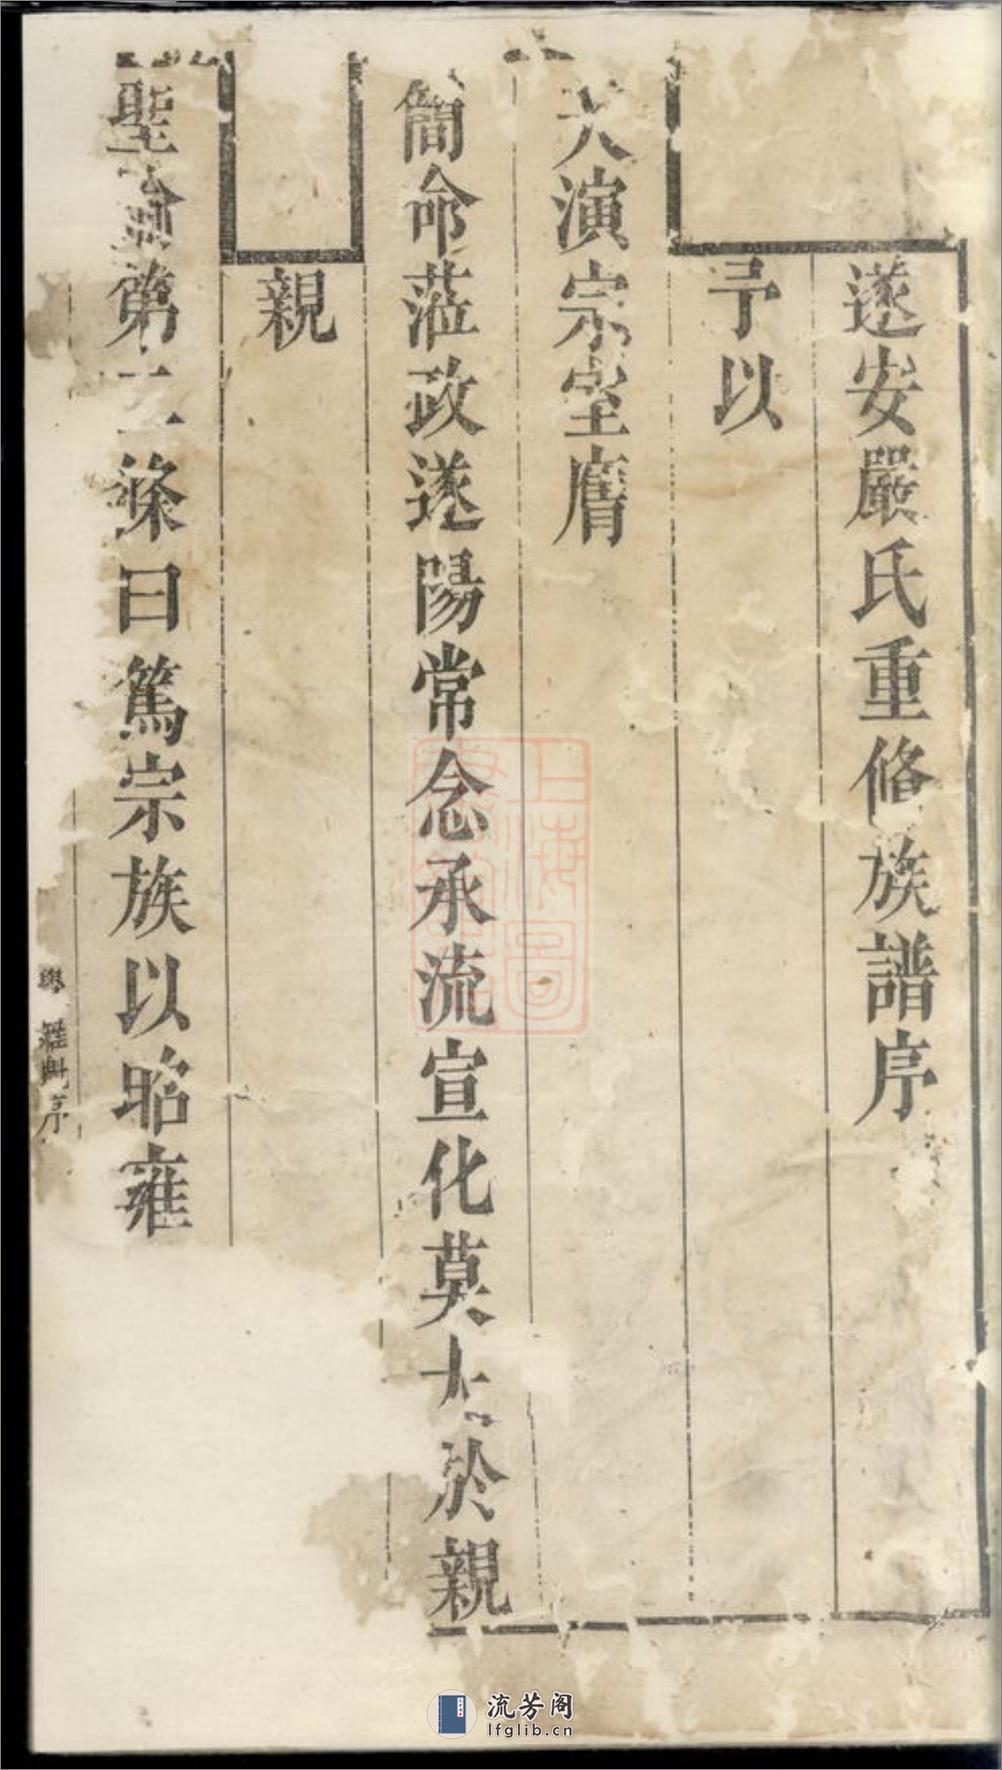 遂安嚴氏重修族譜序
予以
天演宗室膺
簡命蒞政遂陽常念承流宣化莫大於親
親
聖諭第二條曰篤宗族以昭雍
序
上海圖
流芳阁
lfglib.cn